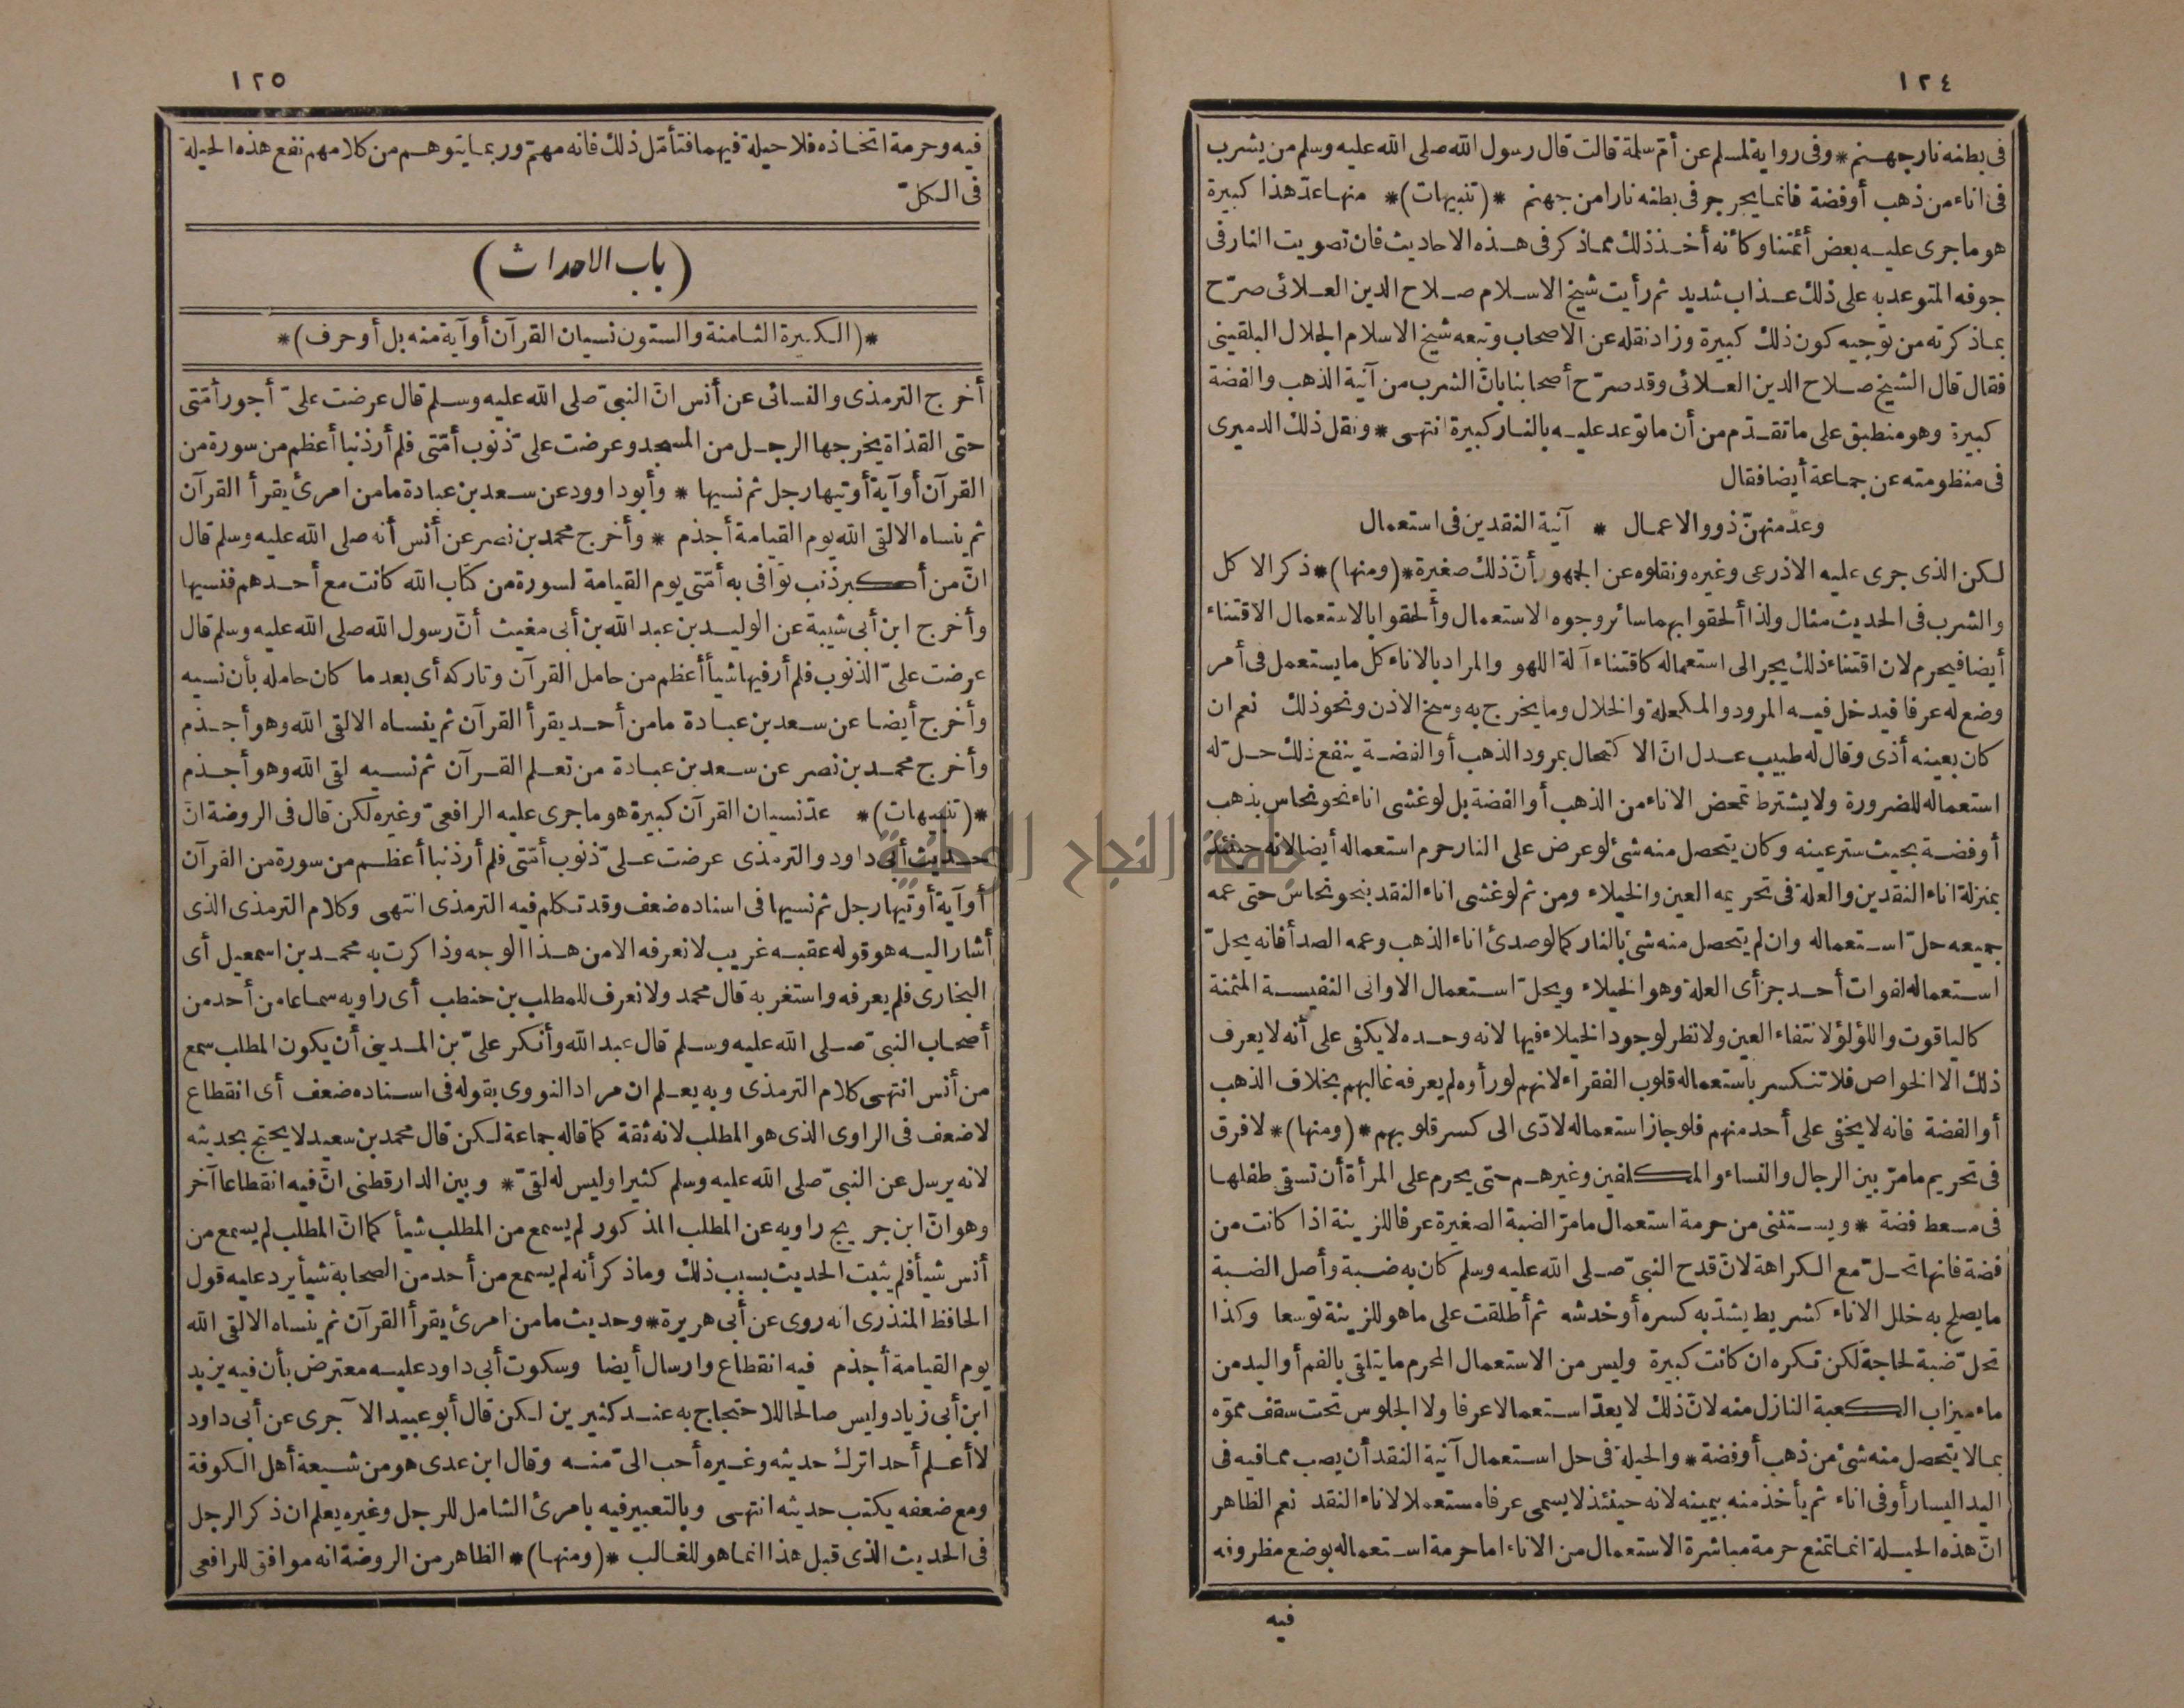 ١٢٤
فى بطنه نار جهنم * وفى رواية لمسلم عن أمّ سلمة قالت قال رسول الله صلى الله عليه وسلم من يشرب
فى اناء من ذهب أو فضة فانما يجرجر فى بطنه نارا من جهنم * (تنبيهات) * منها عدّ هذا كبيرة
هو ما جرى عليه بعض أئمتنا وكأنه أخذ ذلك مما ذكر فى هذه الاحاديث فان تصويت النار فى
جوفه المتوعد به على ذلك عذاب شديد ثم رأيت شيخ الاسلام صلاح الدين العلائى صرّح
بما ذكرته من توجيه كون ذلك كبيرة وزاد نقله عن الاصحاب وتبعه شيخ الاسلام الجلال البلقينى
فقال قال الشيخ صلاح الدين العلائى وقد صرّح أصحابنا بانّ الشرب من آنية الذهب والفضة
كبيرة وهو منطبق على ما تقدّم من أن ما توعد عليه بالنار كبيرة انتهى * ونقل ذلك الدميرى
فى منظومته عن جماعة أيضا فقال
وعدّ منهنّ ذوو الاعمال * آنية النقدين فى استعمال
لكن الذى جرى عليه الاذرعى وغيره ونقلوه عن الجمهور أنّ ذلك صغيرة * (ومنها) * ذكر الاكل
والشرب فى الحديث مثال ولذا ألحقوا بهما سائر وجوه الاستعمال وألحقوا بالاستعمال الاقتناء
أيضا فيحرم لان اقتناء ذلك يجر الى استعماله كاقتناء آلة اللهو والمراد بالاناء كل ما يستعمل فى أمر
وضع له عرفا فيدخل فيه المرود والمكحلة والخلال وما يخرج به وسخ الاذن ونحو ذلك نعم ان
كان بعينه أذى وقال له طبيب عدل انّ الاكتحال بمرود الذهب أو الفضة ينفع ذلك حلّ له
استعماله للضرورة ولا يشترط تمحض الاناء من الذهب أو الفضة بل لو غشى اناء نحو نحاس بذهب
أو فضة بحيث ستر عينه وكان يتحصل منه شئ لو عرض على النار حرم استعماله أيضا لانه حينئذ
بمنزلة اناء النقدين والعلة فى تحريمه العين والخيلاء ومن ثم لو غشى اناء النقد بنحو نحاس حتى عمه
جميعه حلّ استعماله وان لم يتحصل منه شئ بالنار كما لو صدئ اناء الذهب وعمه الصدأ فانه يحلّ
استعماله لفوات أحد جزأى العلة وهو الخيلاء ويحلّ استعمال الاوانى النفيسة المثمنة
كالياقوت واللؤلؤ لانتفاء العين ولا نظر لوجود الخيلاء فيها لانه وحده لا يكفى على أنه لا يعرف
ذلك الا الخواص فلا تنكسر باستعماله قلوب الفقراء لانهم لو رأوه لم يعرفه غالبهم بخلاف الذهب
أو الفضة فانه لا يخفى على أحد منهم فلو جاز استعماله لادّى الى كسر قلوبهم * (ومنها) * لا فرق
فى تحريم ما مرّ بين الرجال والنساء والمكلفين وغيرهم حتى يحرم على المرأة أن تسقى طفلها
فى مسعط فضة * ويستثنى من حرمة استعمال ما مرّ الضبة الصغيرة عرفا للزينة اذا كانت من
فضة فانها تحلّ مع الكراهة لانّ قدح النبىّ صلى الله عليه وسلم كان به ضبة وأصل الضبة
ما يصلح به خلل الاناء كشريط يشدّ به كسره أو خدشه ثم أطلقت على ما هو للزينة توسعا وكذا
تحلّ ضبة لحاجة لكن تكره ان كانت كبيرة وليس من الاستعمال المحرم ما يتلقى بالفم أو اليد من
ماء ميزاب الكعبة النازل منه لانّ ذلك لا يعدّ استعمالا عرفا ولا الجلوس تحت سقف مموّه
بما لا يتحصل منه شئ من ذهب أو فضة * والحيلة فى حل استعمال آنية النقد أن يصب مما فيه فى
اليد اليسار أو فى اناء ثم يأخذ منه بيمينه لانه حينئذ لا يسمى عرفا مستعملا لاناء النقد نعم الظاهر
انّ هذه الحيلة انما تمنع حرمة مباشرة الاستعمال من الاناء اما حرمة استعماله بوضع مظروفه
فيه
١٢٥
فيه وحرمة اتخاذه فلا حيلة فيهما فتأمّل ذلك فانه مهمّ وربما يتوهم من كلامهم نفع هذه الحيلة
فى الكلّ
(باب الاحداث)
* (الكبيرة الثامنة والستون نسيان القرآن أو آية منه بل أو حرف) *
أخرج الترمذى والنسائى عن أنس انّ النبىّ صلى الله عليه وسلم قال عرضت علىّ أجور أمّتى
حتى القذاة يخرجها الرجل من المسجد وعرضت علىّ ذنوب أمّتى فلم أر ذنبا أعظم من سورة من
القرآن أو آية أوتيها رجل ثم نسيها * وأبو داوود عن سعد بن عبادة ما من امرئ يقرأ القرآن
ثم ينساه الا لقى الله يوم القيامة أجذم * وأخرج محمد بن نصر عن أنس أنه صلى الله عليه وسلم قال
انّ من أكبر ذنب توافى به أمّتى يوم القيامة لسورة من كتاب الله كانت مع أحدهم فنسيها
وأخرج ابن أبى شيبة عن الوليد بن عبد الله بن أبى مغيث أنّ رسول الله صلى الله عليه وسلم قال
عرضت علىّ الذنوب فلم أر فيها شيأ أعظم من حامل القرآن وتاركه أى بعد ما كان حامله بأن نسيه
وأخرج أيضا عن سعد بن عبادة ما من أحد يقرأ القرآن ثم ينساه الا لقى الله وهو أجذم
وأخرج محمد بن نصر عن سعد بن عبادة من تعلم القرآن ثم نسيه لقى الله وهو أجذم
* (تنبيهات) * عدّ نسيان القرآن كبيرة هو ما جرى عليه الرافعىّ وغيره لكن قال فى الروضة انّ
حديث أبى داود والترمذى عرضت علىّ ذنوب أمّتى فلم أر ذنبا أعظم من سورة من القرآن
أو آية أوتيها رجل ثم نسيها فى اسناده ضعف وقد تكلم فيه الترمذى انتهى وكلام الترمذى الذى
أشار اليه هو قوله عقبه غريب لا نعرفه الا من هذا الوجه وذاكرت به محمد بن اسمعيل أى
البخارى فلم يعرفه واستغربه قال محمد ولا نعرف للمطلب بن حنطب أى راويه سماعا من أحد من
أصحاب النبىّ صلى الله عليه وسلم قال عبد الله وأنكر علىّ بن المدينى أن يكون المطلب سمع
من أنس انتهى كلام الترمذى وبه يعلم ان مراد النووى بقوله فى اسناده ضعف أى انقطاع
لا ضعف فى الراوى الذى هو المطلب لانه ثقة كما قاله جماعة لكن قال محمد بن سعيد لا يحتج بحديثه
لانه يرسل عن النبىّ صلى الله عليه وسلم كثيرا وليس له لقىّ * وبين الدارقطنى انّ فيه انقطاعا آخر
وهو انّ ابن جريج راويه عن المطلب المذكور لم يسمع من المطلب شيأ كما انّ المطلب لم يسمع من
أنس شيأ فلم يثبت الحديث بسبب ذلك وما ذكر أنه لم يسمع من أحد من الصحابة شيأ يرد عليه قول
الحافظ المنذرى انه روى عن أبى هريرة * وحديث ما من امرئ يقرأ القرآن ثم ينساه الا لقى الله
يوم القيامة أجذم فيه انقطاع وارسال أيضا وسكوت أبى داود عليه معترض بأن فيه يزيد
ابن أبى زياد وليس صالحا للاحتجاج به عند كثيرين لكن قال أبو عبيد الآجرى عن أبى داود
لا أعلم أحدا ترك حديثه وغيره أحب الىّ منه وقال ابن عدى هو من شيعة أهل الكوفة
ومع ضعفه يكتب حديثه انتهى وبالتعبير فيه بامرئ الشامل للرجل وغيره يعلم ان ذكر الرجل
فى الحديث الذى قبل هذا انما هو للغالب * (ومنها) * الظاهر من الروضة انه موافق للرافعى
جامعة النجاح الوطنية